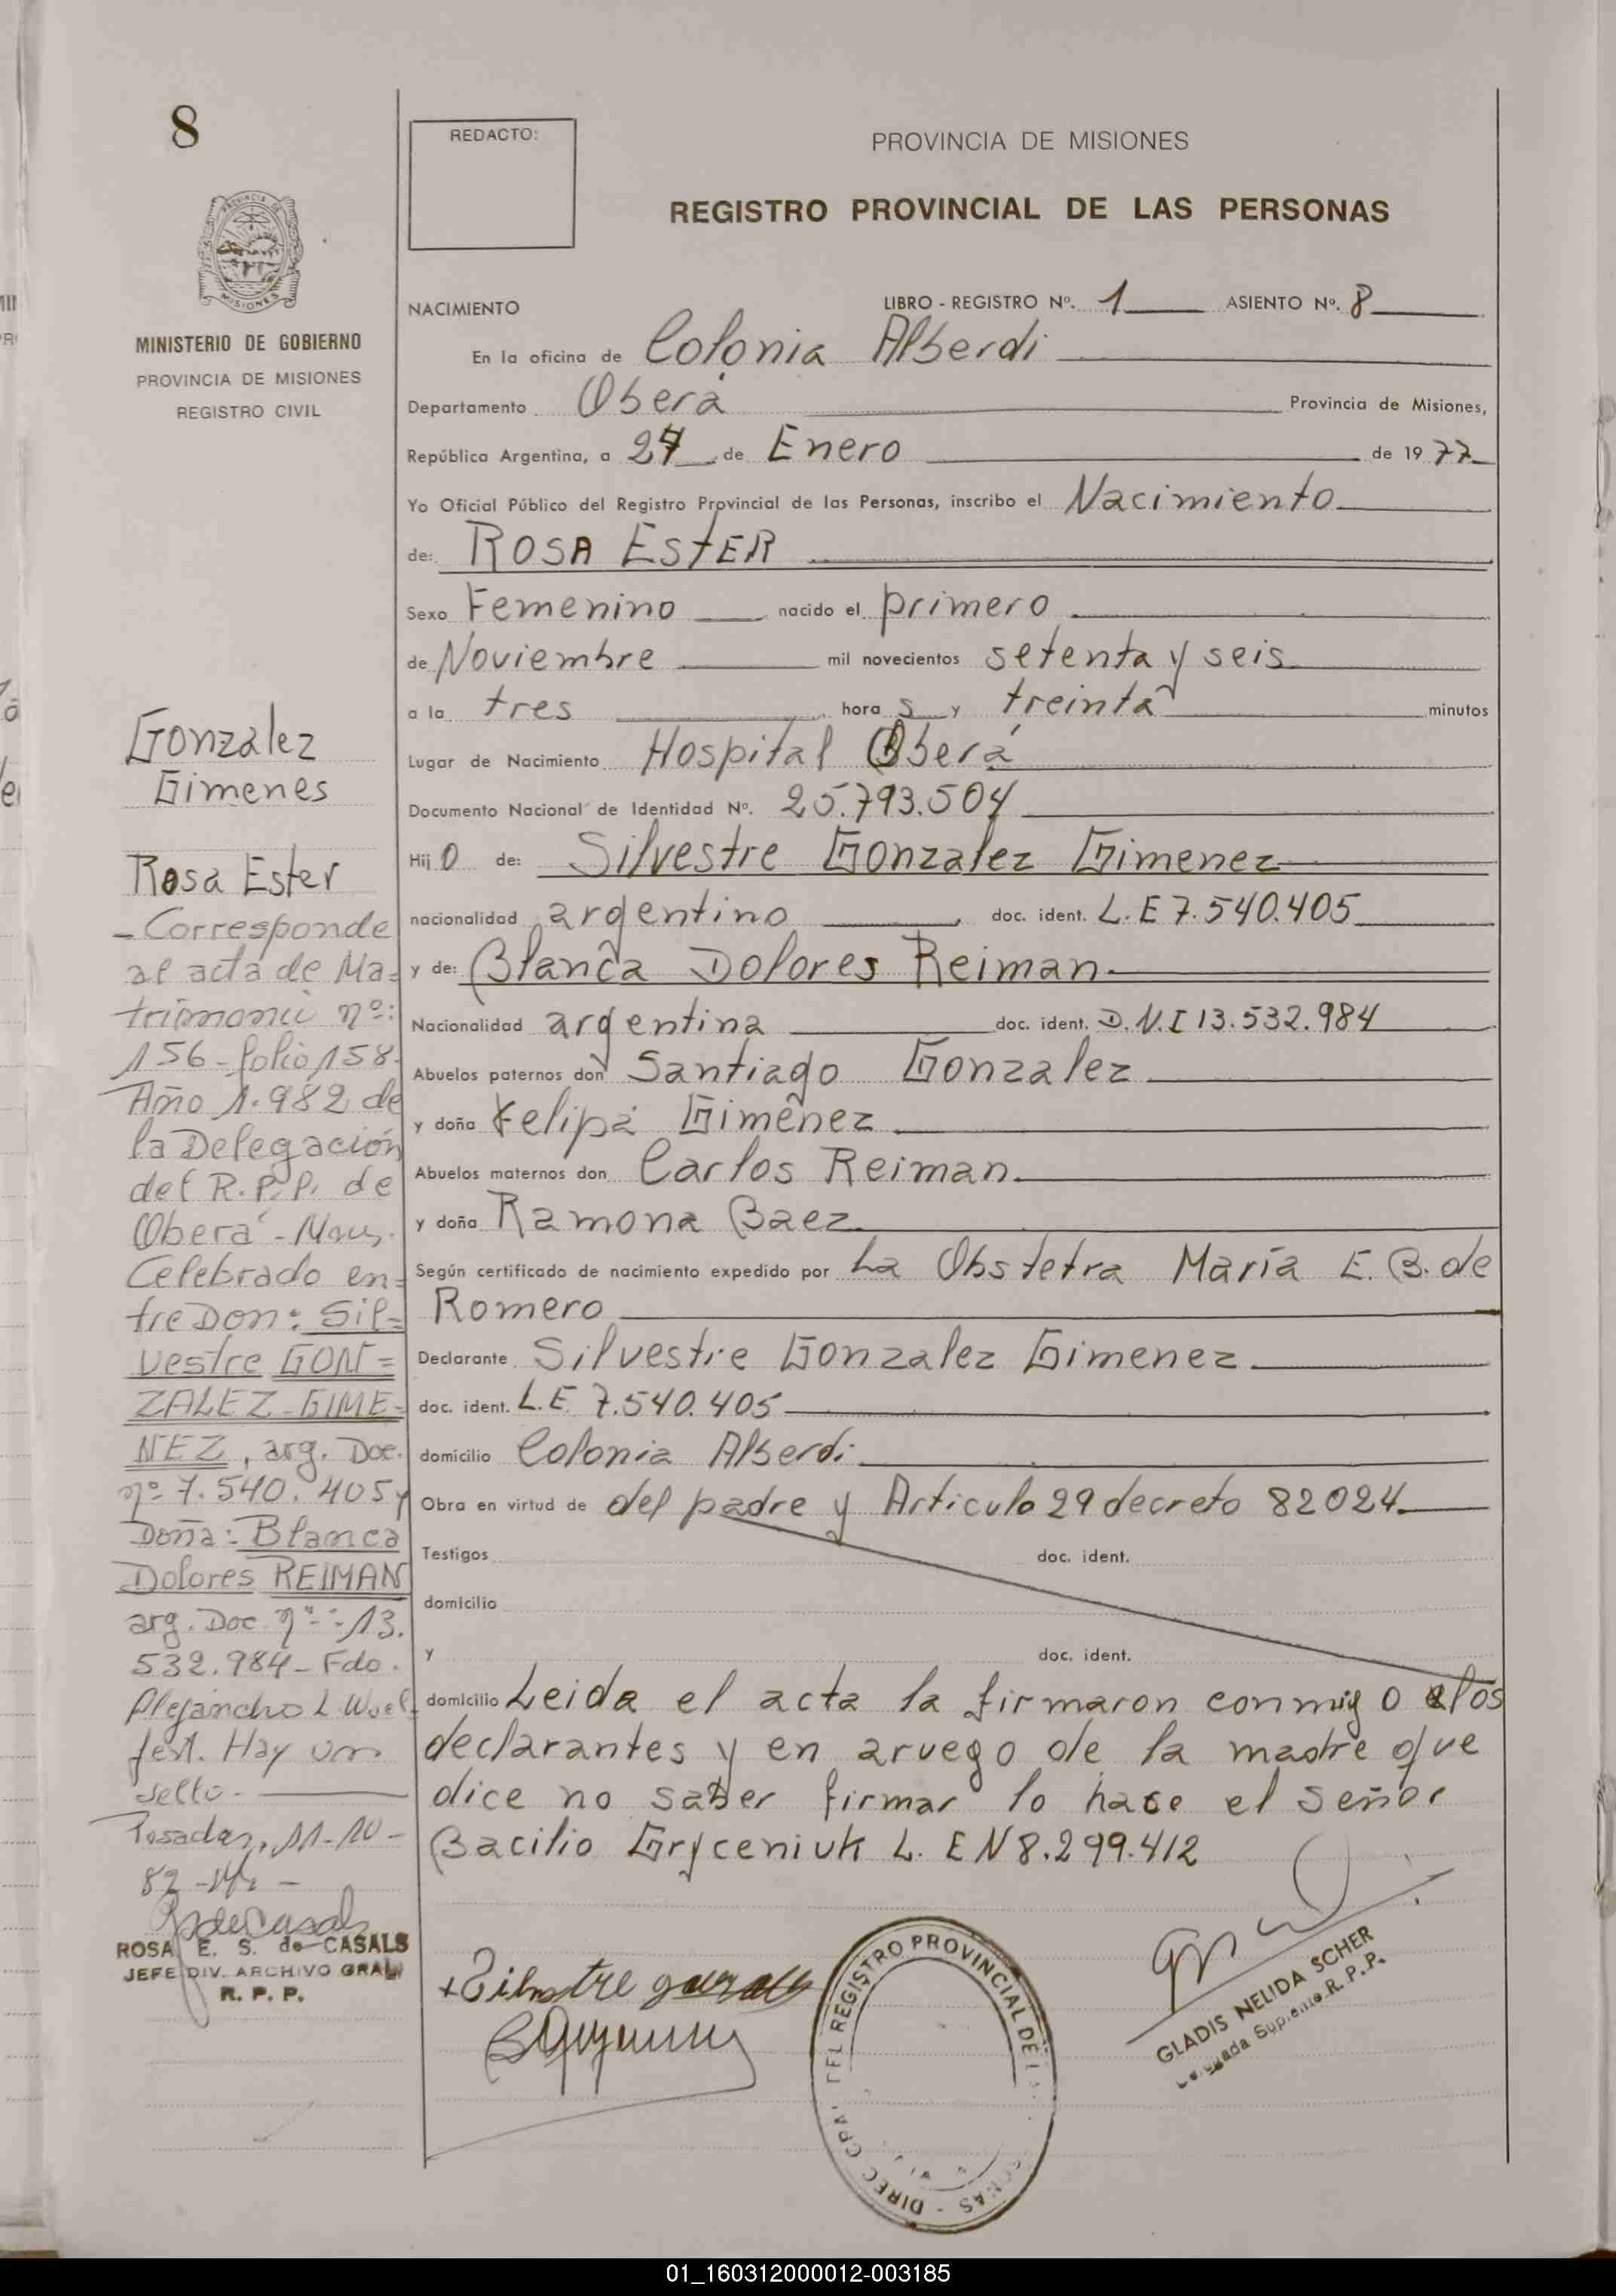 8
MINISTERIO DE GOBIERNO
PROVINCIA DE MISIONES
REGISTRO CIVIL
REDACTO:
PROVINCIA DE MISIONES
REGISTRO PROVINCIAL DE LAS PERSONAS
NACIMIENTO LIBRO - REGISTRO Nº. 1 ASIENTO Nº. 8
En la oficina de Colonia Alberdi
Departamento Oberá Provincia de Misiones,
República Argentina, a 27 de Enero de 1977
Yo Oficial Público del Registro Provincial de las Personas, inscribo el Nacimiento
de: ROSA ESTER
Sexo Femenino nacido el primero
de Noviembre mil novecientos setenta y seis
a la tres hora s y treinta minutos
Lugar de Nacimiento Hospital Oberá
Documento Nacional de Identidad Nº. 25.793.504
Hij o de: Silvestre Gonzalez Gimenez
nacionalidad argentino doc. ident. L.E 7.540.405
y de: Blanca Dolores Reiman
Nacionalidad argentina doc. ident. D.N.I 13.532.984
Abuelos paternos don Santiago Gonzalez
y doña Felipa Gimenez
Abuelos maternos don Carlos Reiman
y doña Ramona Baez
Según certificado de nacimiento expedido por La Obstetra María E. B. de
Romero
Declarante Silvestre Gonzalez Gimenez
doc. ident. L.E. 7.540.405
domicilio Colonia Alberdi
Obra en virtud de del padre y Articulo 29 decreto 82024
Testigos doc. ident.
domicilio
y doc. ident.
domicilio Leida el acta la firmaron conmigo los
declarantes y en aruego de la madre que
dice no saber firmar lo hace el señor
Bacilio Gryceniuk L. E N 8.299.412
Gonzalez
Gimenes
Rosa Ester
- Corresponde
al acta de Ma=
trimonio nº:
156 - folio 158-
Año 1.982 de
la Delegación
del R.P.P. de
Oberá - Mnes.
Celebrado en=
tre Don: Sil=
vestre GON=
ZALEZ GIME=
NEZ, arg. Doc.
nº 7.540.405 y
Doña: Blanca
Dolores REIMAN
arg. Doc. nº: 13.
532.984 - Fdo.
Alejandro L.
Hay un
sello.-
Posadas, 11-10-
82
ROSA E. S. de CASALS
JEFE DIV. ARCHIVO GRAL
R. P. P.
DIREC. GRAL. DEL REGISTRO PROVINCIAL DE
GLADIS NELIDA SCHER
Delegada Suplente R.P.P.
01_160312000012-003185